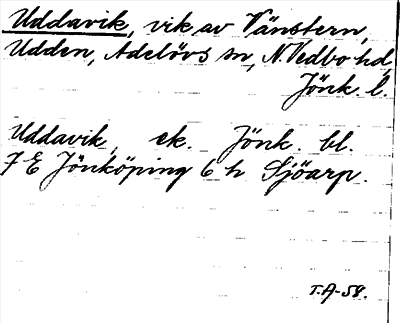 Uddavik, vik av Vänstern,
Udden, Adelövs sn, N. Vedbo hd,
Jönk. l.
Uddavik, ek. Jönk. bl.
7 E Jönköping 6 h Sjöarp.
T.A-58.